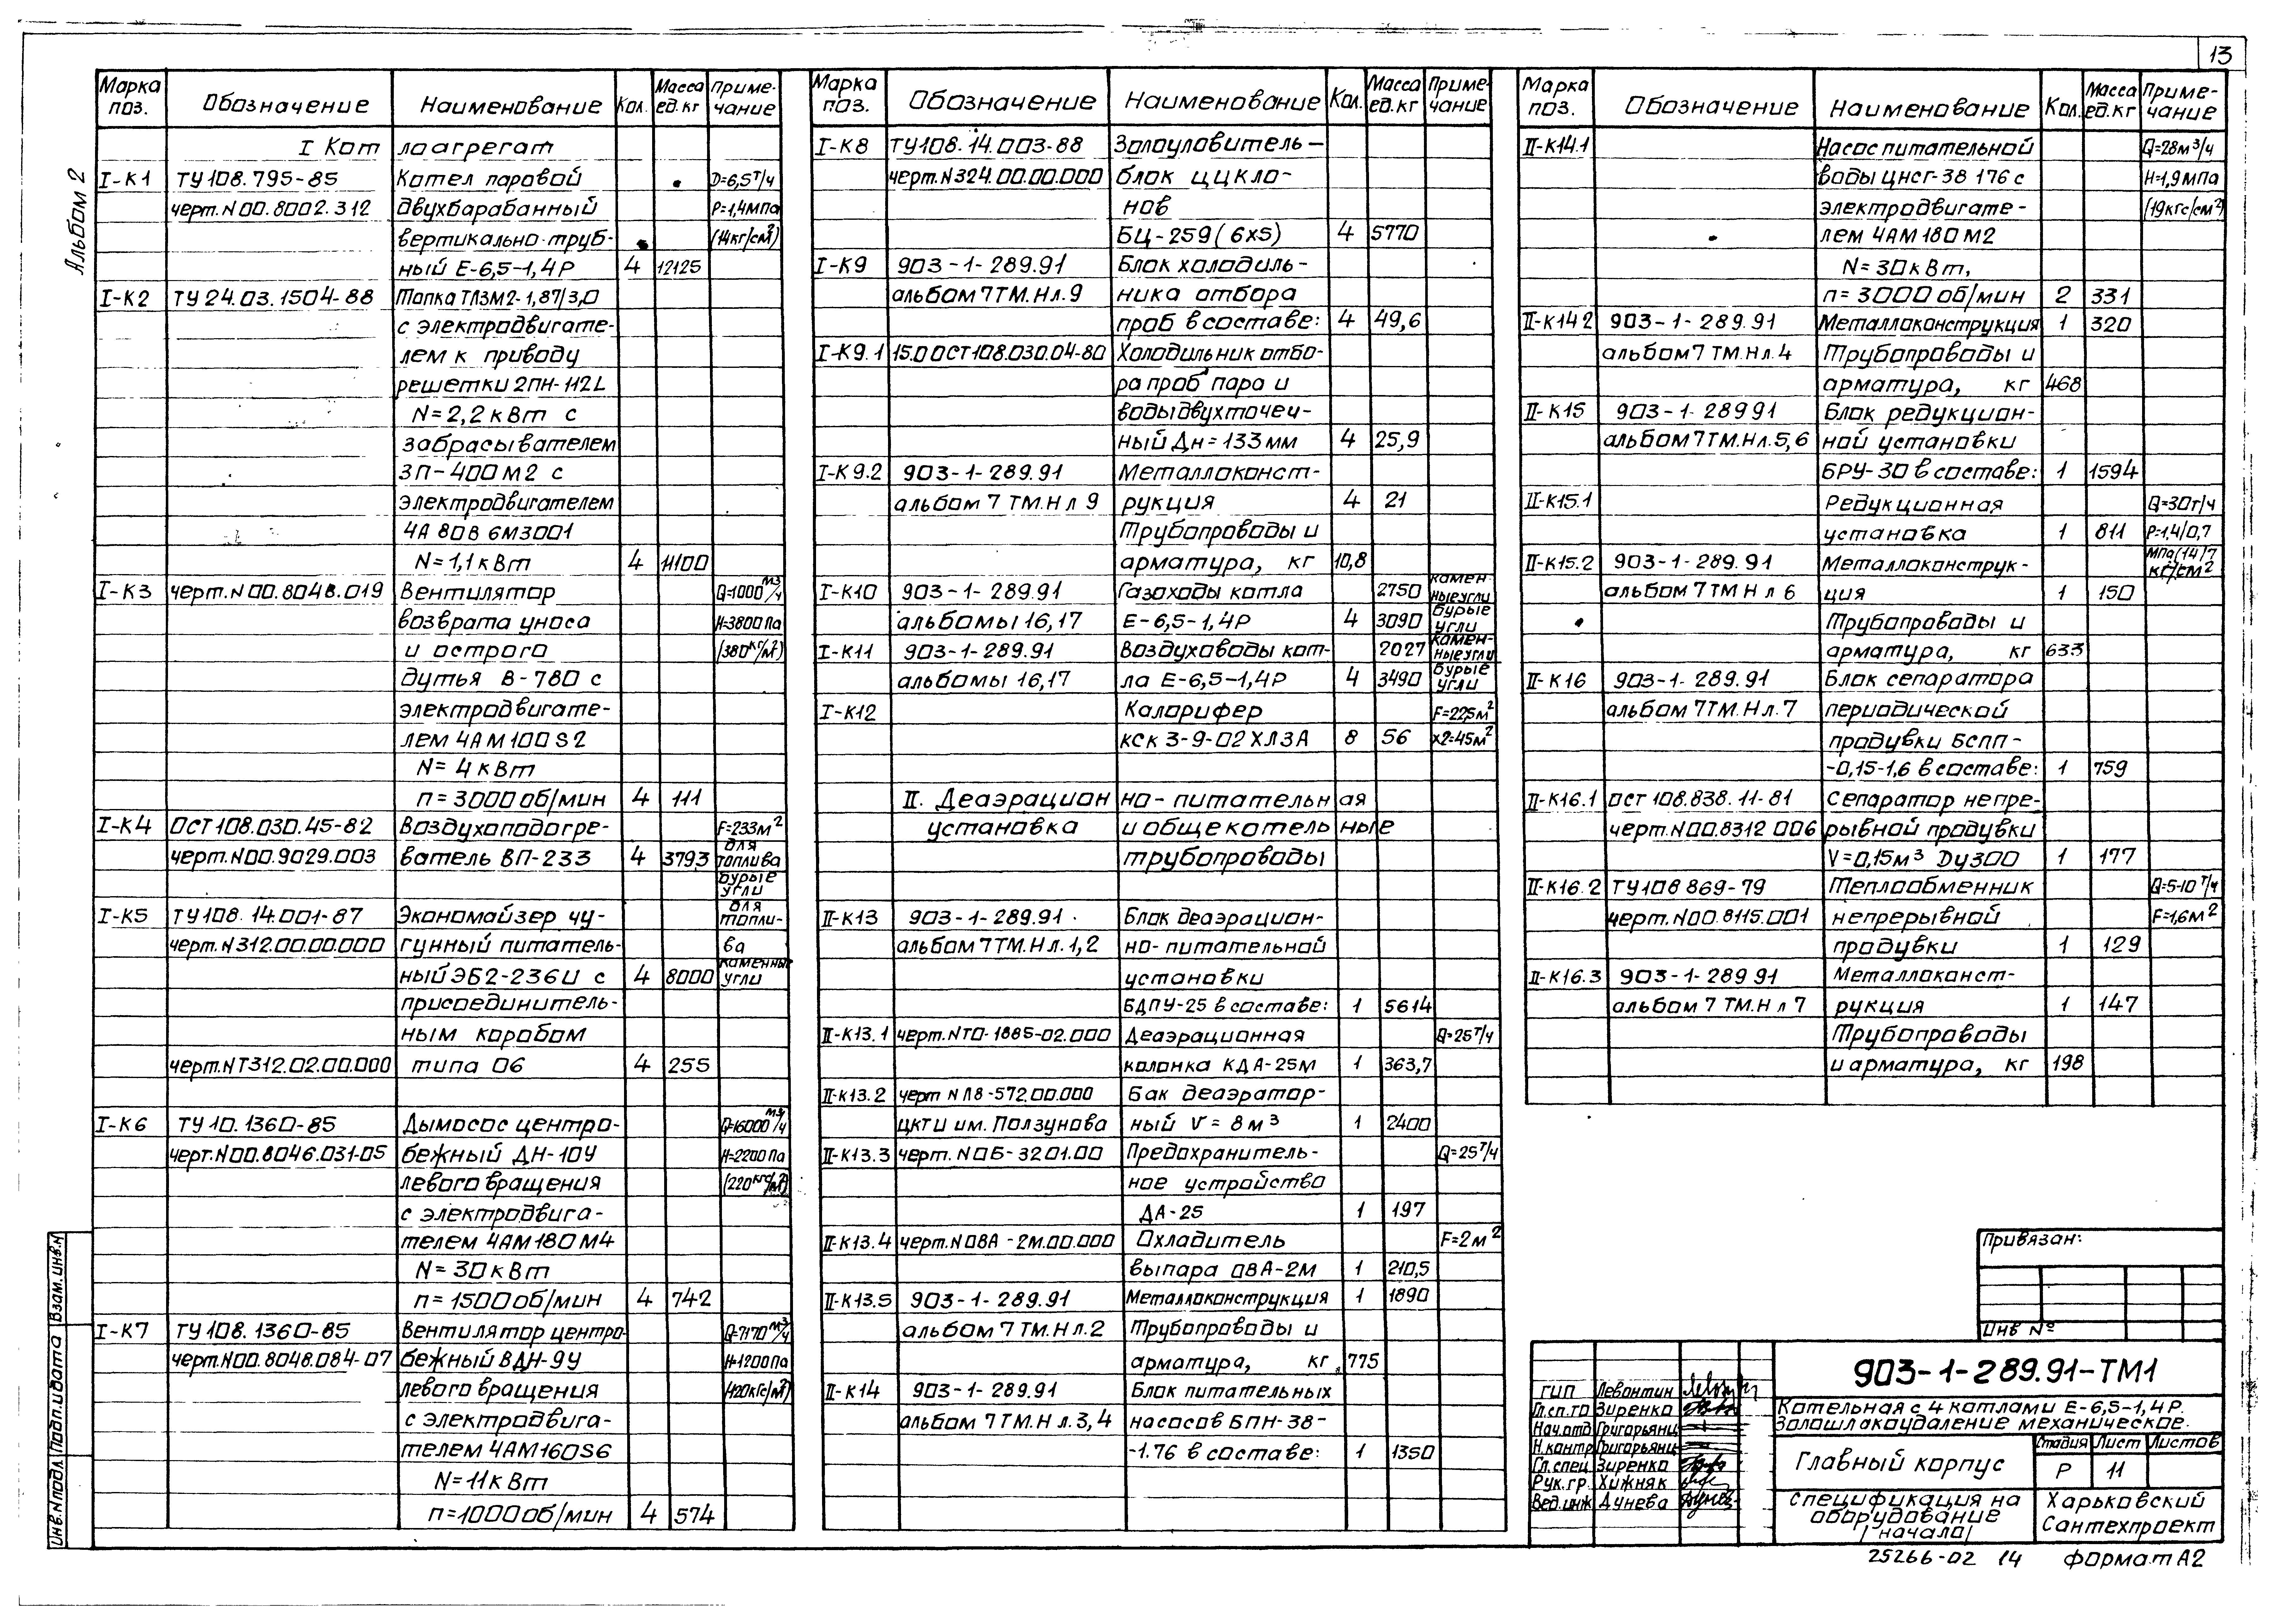 13
Альбом 2
Марка поз. Обозначение Наименование Кол. Масса ед.кг Примечание
I Котлоагрегат
I-К1 ТУ108.795-85 Котел паровой D=6,5т/ч
черт.N00.8002.312 двухбарабанный Р=1,4МПа
вертикально-труб- (14кг/см²)
ный Е-6,5-1,4Р 4 12125
I-К2 ТУ24.03.1504-88 Топка ТЛЗМ2-1,87/3,0
с электродвигате-
лем к приводу
решетки 2ПН-112L
N=2,2кВт с
забрасывателем
ЗП-400М2 с
электродвигателем
4А80В6М3001
N=1,1кВт 4 11100
I-К3 черт.N00.8048.019 Вентилятор Q=1000м³/ч
возврата уноса Н=3800Па
и острого (380кг/м²)
дутья В-780 с
электродвигате-
лем 4АМ100S2
N=4кВт
n=3000об/мин 4 111
I-К4 ОСТ108.030.45-82 Воздухоподогре- F=233м²
черт.N00.9029.003 ватель ВП-233 4 3793 для топлива
бурые угли
I-К5 ТУ108.14.001-87 Экономайзер чу- для топли-
черт.N312.00.00.000 гунный питатель- ва
ный ЭБ2-236И с 4 8000 каменные угли
присоединитель-
ным коробом
черт.NТ312.02.00.000 типа 06 4 255
I-К6 ТУ10.1360-85 Дымосос центро- Q=16000м³/ч
черт.N00.8046.031-05 бежный ДН-10У Н=2200Па
левого вращения (220кгс/м²)
с электродвига-
телем 4АМ180М4
N=30кВт
n=1500об/мин 4 742
I-К7 ТУ108.1360-85 Вентилятор центро- Q=7170м³/ч
черт.N00.8048.084-07 бежный ВДН-9У Н=1200Па
левого вращения (120кгс/м²)
с электродвига-
телем 4АМ160S6
N=11кВт
n=1000об/мин 4 574
Марка поз. Обозначение Наименование Кол. Масса ед.кг Примечание
I-К8 ТУ108.14.003-88 Золоуловитель –
черт.N324.00.00.000 блок цикло-
нов
БЦ-259(6х5) 4 5770
I-К9 903-1-289.91 Блок холодиль-
альбом 7ТМ.Нл.9 ника отбора
проб в составе: 4 49,6
I-К9.1 15.0ОСТ108.030.04-80 Холодильник отбо-
ра проб пара и
воды двухточеч-
ный Дн=133мм 4 25,9
I-К9.2 903-1-289.91 Металлоконст-
альбом 7 ТМ.Нл 9 рукция 4 21
Трубопроводы и
арматура, кг 10,8
I-К10 903-1-289.91 Газоходы котла 2750 каменные угли
альбомы 16,17 Е-6,5-1,4Р 4 3090 бурые угли
I-К11 903-1-289.91 Воздуховоды кот- 2027 каменные угли
альбомы 16,17 ла Е-6,5-1,4Р 4 3490 бурые угли
I-К12 Калорифер F=22,5м²
КСК 3-9-02ХЛ3А 8 56 х2=45м²
II. Деаэрационно-питательная
установка и общекотельные
трубопроводы
II-К13 903-1-289.91 Блок деаэрацион-
альбом 7ТМ.Нл.1,2 но-питательной
установки
БДПУ-25 в составе: 1 5614
II-К13.1 черт.NТО-1885-02.000 Деаэрационная Q=25т/ч
колонка КДА-25М 1 363,7
II-К13.2 черт NЛ8-572.00.000 Бак деаэратор-
ЦКТИ им. Ползунова ный V=8м³ 1 2400
II-К13.3 черт.NОБ-3201.00 Предохранитель- Q=25т/ч
ное устройство
ДА-25 1 197
II-К13.4 черт.NОВА-2М.00.000 Охладитель F=2м²
выпара ОВА-2М 1 210,5
II-К13.5 903-1-289.91 Металлоконструкция 1 1890
альбом 7ТМ.Нл.2 Трубопроводы и
арматура, кг 775
II-К14 903-1-289.91 Блок питательных
альбом 7ТМ.Нл.3,4 насосов БПН-38-
-1.76 в составе: 1 1350
Марка поз. Обозначение Наименование Кол. Масса ед.кг Примечание
II-К14.1 Насос питательной Q=28м³/ч
воды ЦНСГ-38 176 с Н=1,9МПа
электродвигате- (19кгс/см²)
лем 4АМ180М2
N=30кВт,
n=3000об/мин 2 331
II-К14.2 903-1-289.91 Металлоконструкция 1 320
альбом 7 ТМ.Нл.4 Трубопроводы и
арматура, кг 468
II-К15 903-1-289.91 Блок редукцион-
альбом 7ТМ.Нл.5,6 ной установки
БРУ-30 в составе: 1 1594
II-К15.1 Редукционная Q=30т/ч
установка 1 811 Р=1,4/0,7
II-К15.2 903-1-289.91 Металлоконструк- МПа(14/7 кг/см²
альбом 7ТМ Нл 6 ция 1 150
Трубопроводы и
арматура, кг 633
II-К16 903-1-289.91 Блок сепаратора
альбом 7ТМ.Нл.7 периодической
продувки БСПП-
-0,15-1,6 в составе: 1 759
II-К16.1 ОСТ 108.838.11-81 Сепаратор непре-
черт.N00.8312 006 рывной продувки
V=0,15м³ Dу300 1 177
II-К16.2 ТУ108 869-79 Теплообменник Q=5-10т/ч
черт.N00.8115.001 непрерывной F=1,6м²
продувки 1 129
II-К16.3 903-1-289.91 Металлоконст-
альбом 7 ТМ.Нл 7 рукция 1 147
Трубопроводы
и арматура, кг 198
Привязан:
Инв №
903-1-289.91-ТМ1
ГИП Левонтин
Гл.сп.ТО Зиренко
Нач.отд Григорьянц
Н.контр Григорьянц
Гл.спец Зиренко
Рук.гр. Хижняк
Вед.инж Дунева
Котельная с 4 котлами Е-6,5-1,4Р.
Золошлакоудаление механическое.
Главный корпус
Стадия Лист Листов
Р 11
Спецификация на
оборудование
/начало/
Харьковский
Сантехпроект
25266-02 14 формат А2
Инв.Nподл Подп.и дата Взам.инв.N